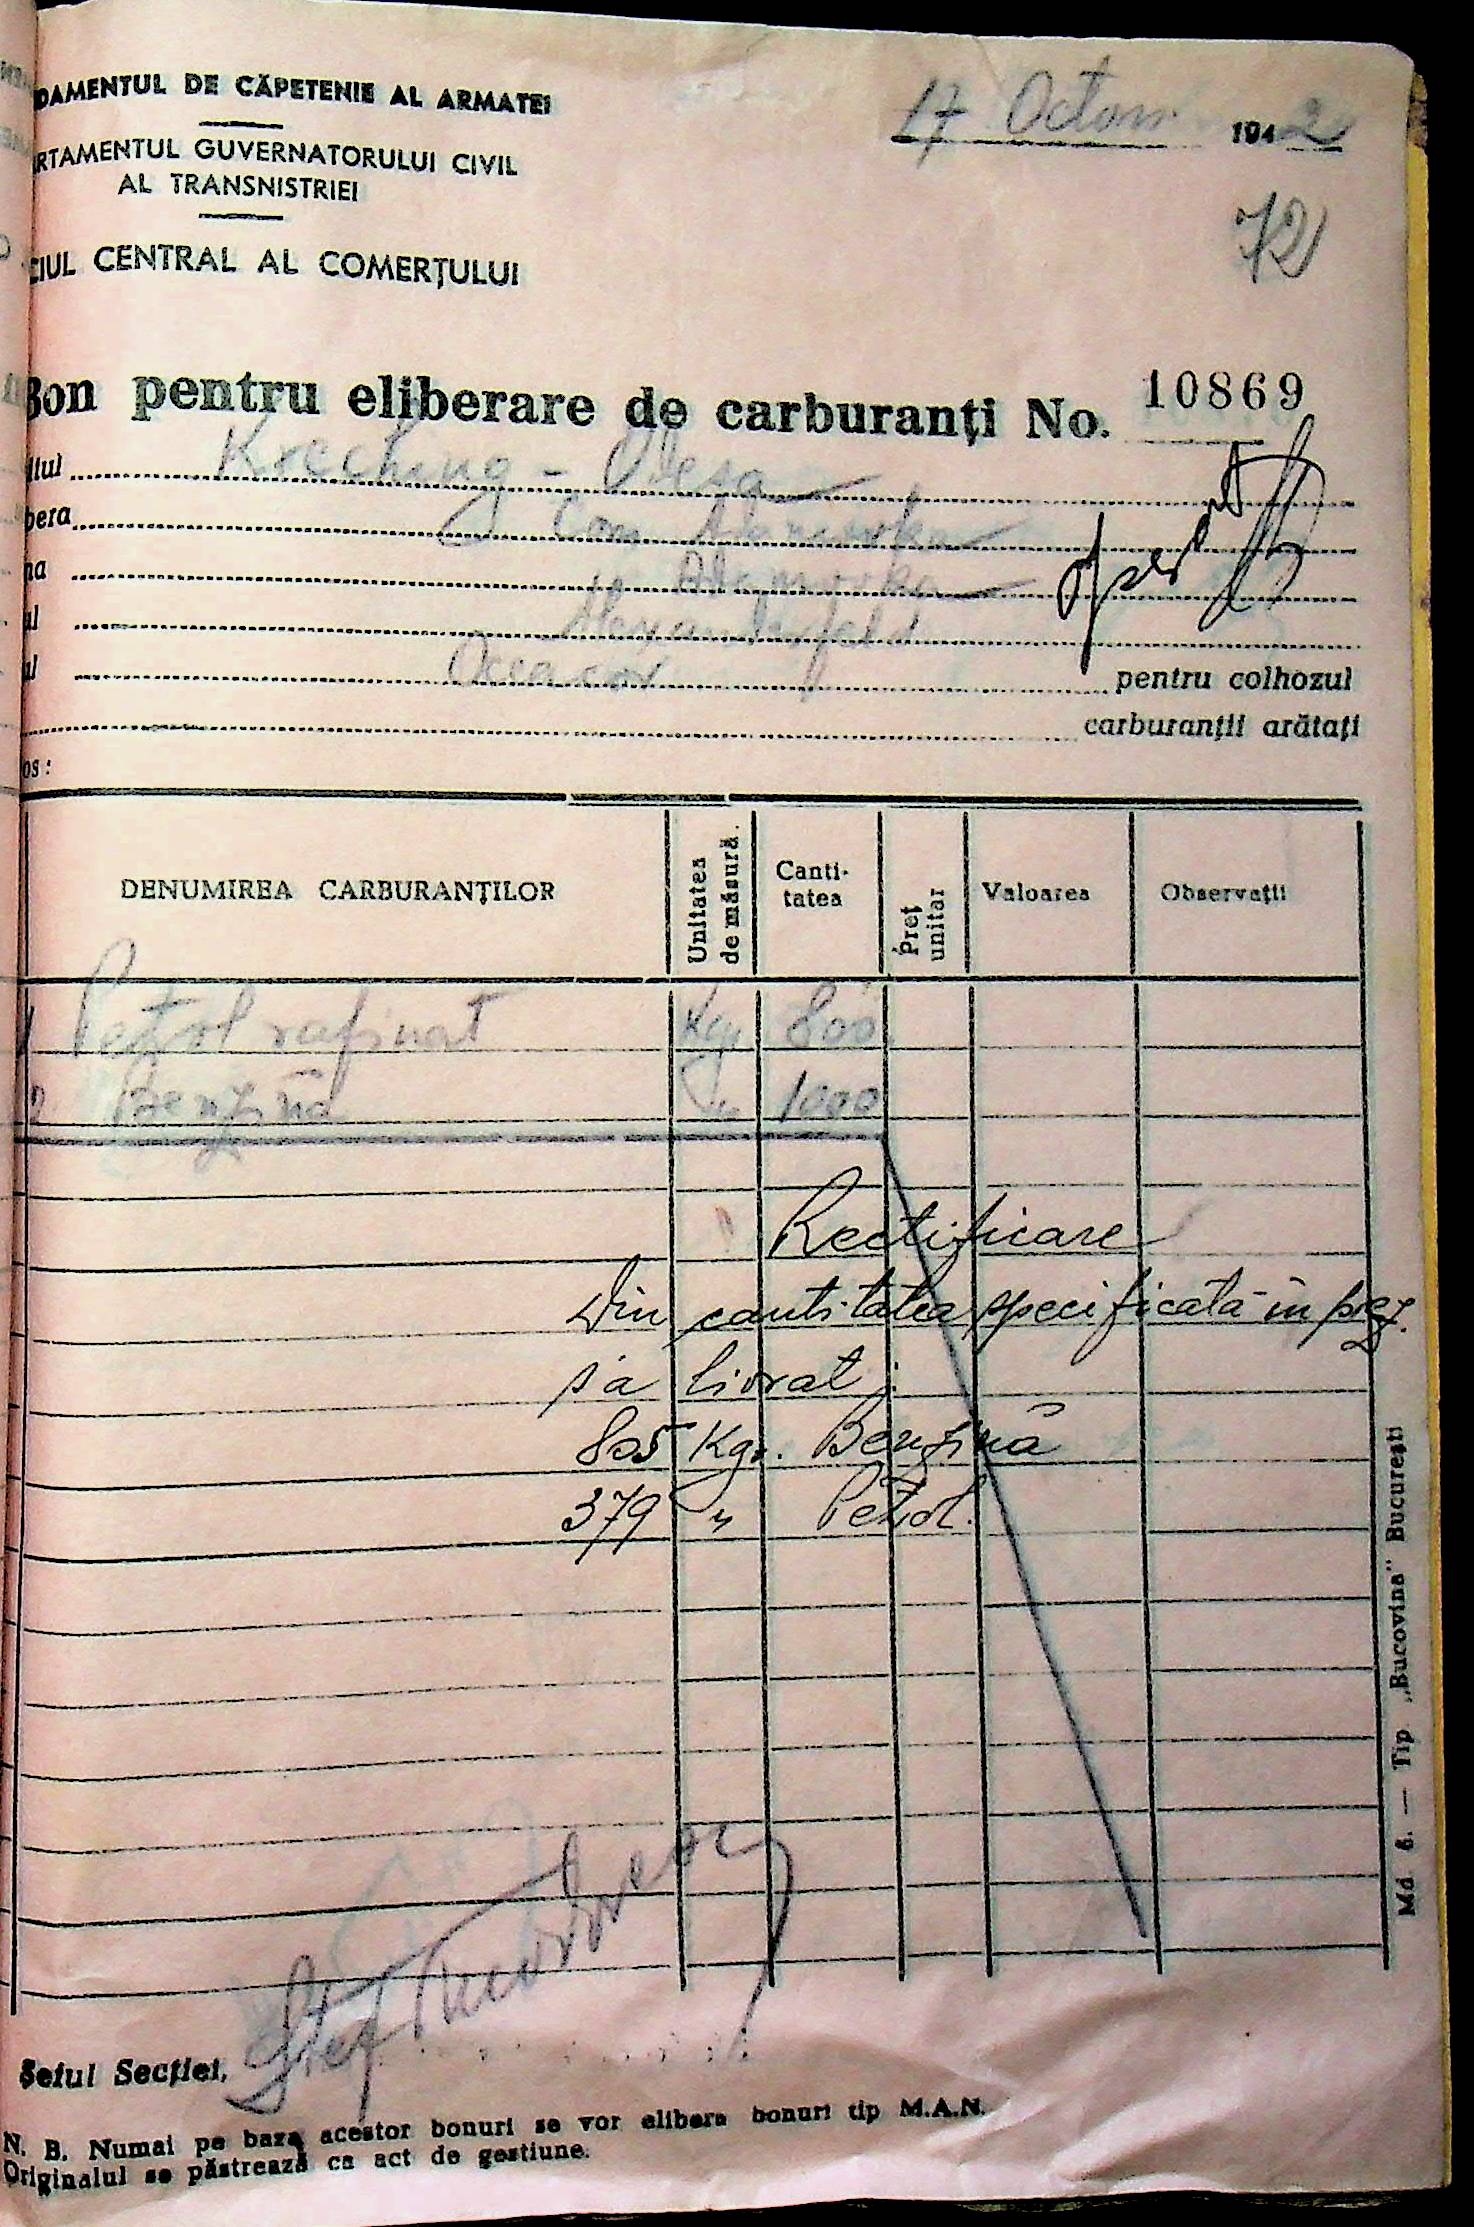 DAMENTUL DE CĂPETENIE AL ARMATEI
RTAMENTUL GUVERNATORULUI CIVIL
AL TRANSNISTRIEI
CIUL CENTRAL AL COMERȚULUI
17 Octom 1942
72
Bon pentru eliberare de carburanți No. 10869
itul Kreching - Odesa
bera Com
na
ul Alexanderfeld
ul Oceacov pentru colhozul
carburanții arătați
os:
DENUMIREA CARBURANȚILOR Unitatea de măsură. Canti-tatea Preț unitar Valoarea Observații
1 Petrol rafinat Kgr 800
2 Benzină " 1000
Rectificare
Din cantitatea specificată în prez.
s'a livrat:
805 Kgr. Benzină
379 " Petrol.
Șeful Secției,
N. B. Numai pe baza acestor bonuri se vor elibera bonuri tip M.A.N.
Originalul se păstrează ca act de gestiune.
Md. 6. — Tip „Bucovina" București